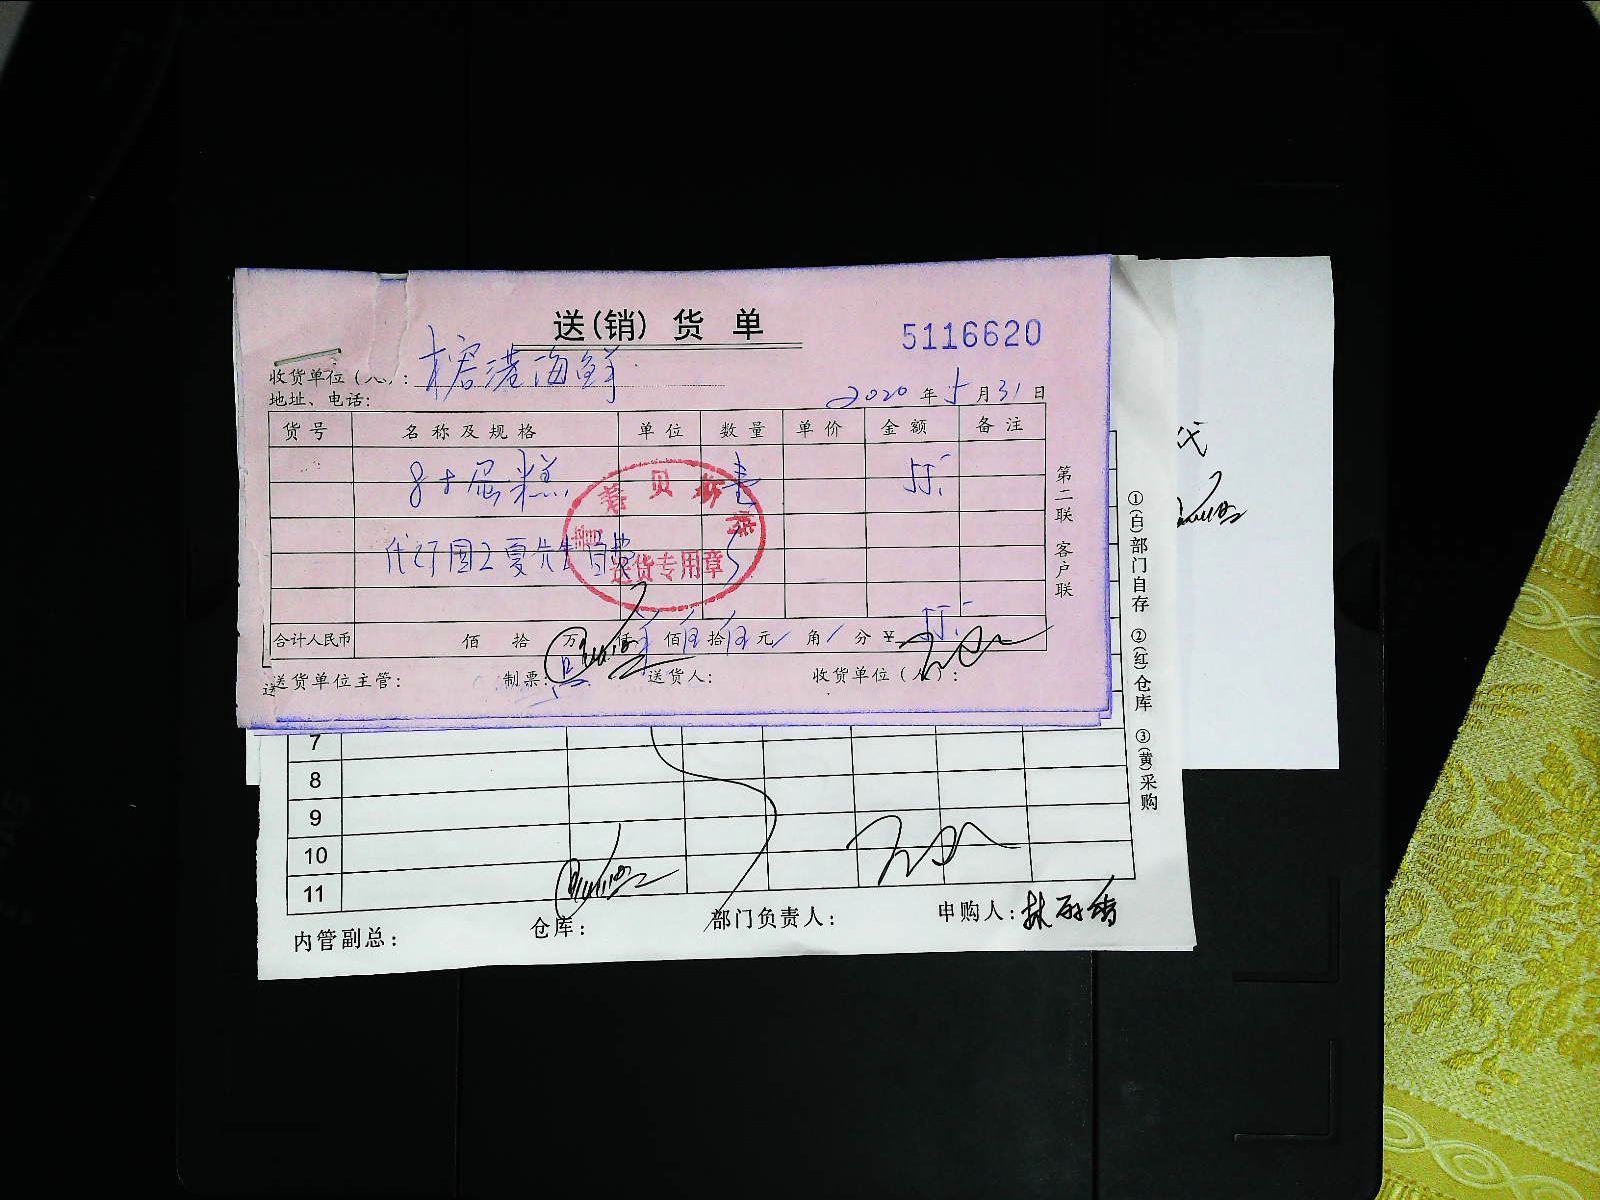 送(销)货单
5116620
收货单位(人): 榕港海鲜
地址、电话:
2020年5月31日
货号 名称及规格 单位 数量 单价 金额 备注
8寸蛋糕 壹 55.-
代订国工夏先生自费
贝
送货专用章
合计人民币 佰 拾 万 仟 佰 伍拾 伍元 / 角 / 分 ¥ 55.-
送货单位主管: 制票: 送货人: 收货单位(人):
第二联 客户联
①(白)部门自存 ②(红)仓库 ③(黄)采购
7
8
9
10
11
内管副总: 仓库: 部门负责人: 申购人: